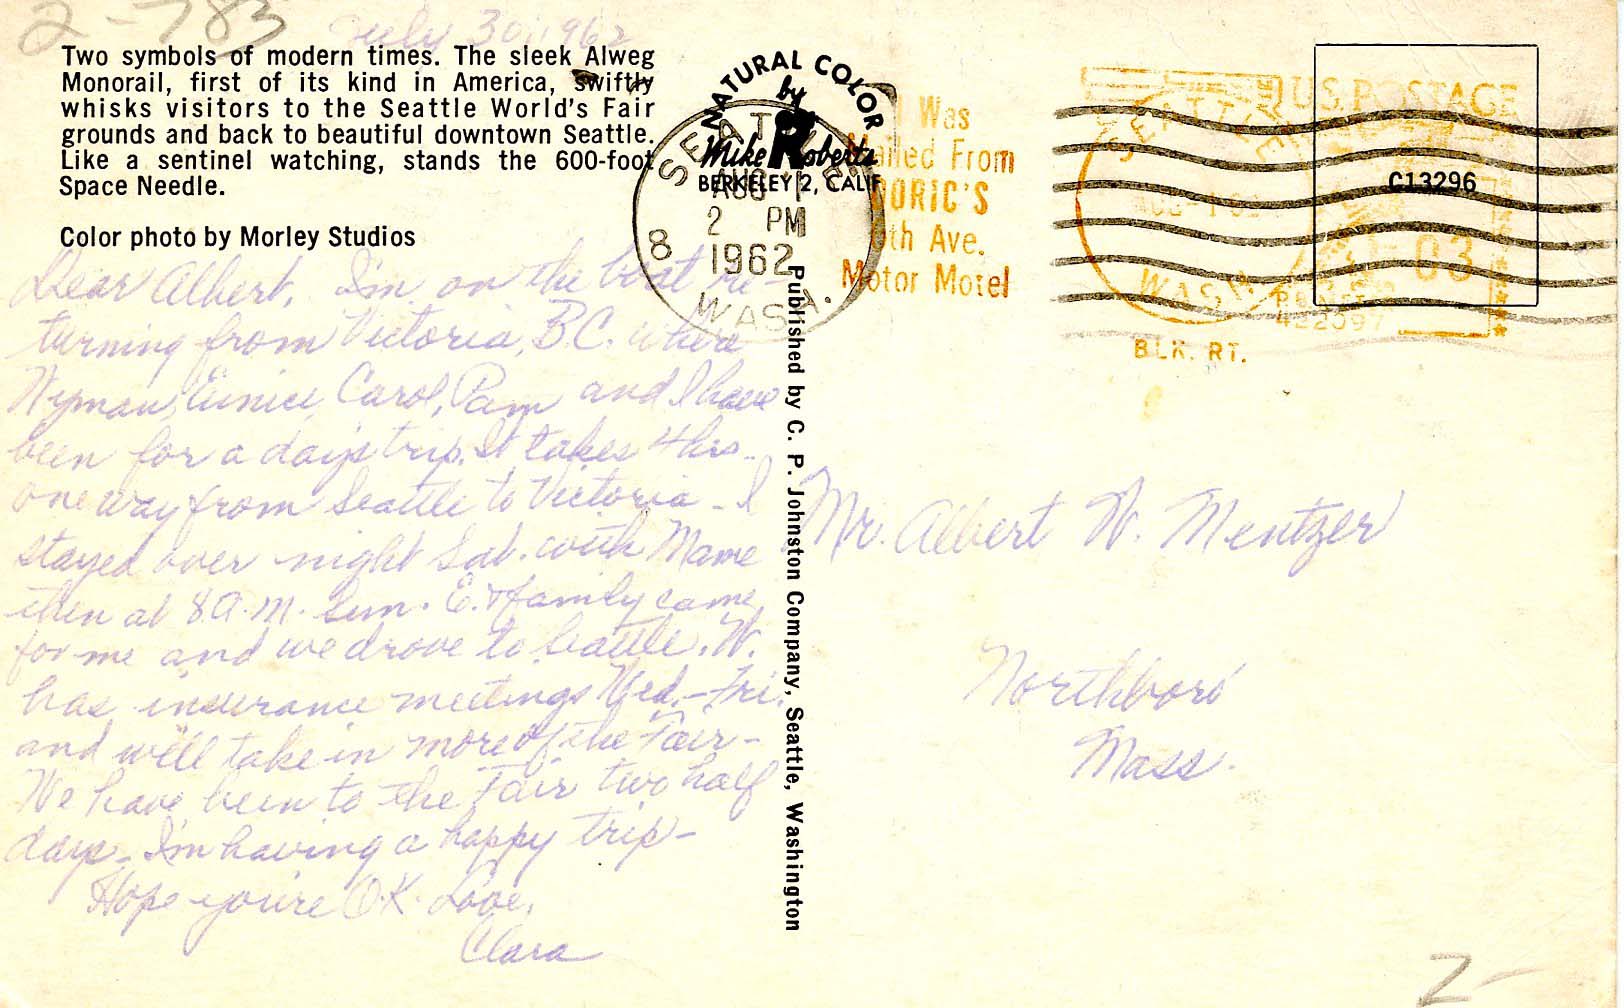 2-783
July 30, 1962
Two symbols of modern times. The sleek Alweg
Monorail, first of its kind in America, swiftly
whisks visitors to the Seattle World's Fair
grounds and back to beautiful downtown Seattle.
Like a sentinel watching, stands the 600-foot
Space Needle.
Color photo by Morley Studios
Dear Albert, I'm on the boat re-
turning from Victoria, B.C. where
Wyman, Eunice, Carol, Pam and I have
been for a day's trip. It takes 4 hrs.
one way from Seattle to Victoria - I
stayed over night Sat. with Mame
then at 8 A.M. Sun. E. & family came
for me and we drove to Seattle. W.
has insurance meetings Wed. - Fri.
and we'll take in more of the Fair -
We have been to the Fair two half
days - I'm having a happy trip -
Hope you're O.K. Love,
Clara
NATURAL COLOR
by
Mike Roberts
BERKELEY 2, CALIF
SEATTLE
AUG 1
2 PM
1962
8
WASH.
Published by C. P. Johnston Company, Seattle, Washington
I Was
Mailed From
DORIC'S
th Ave.
Motor Motel
SEATTLE
WASH.
U.S. POSTAGE
C13296
03
BLK. RT.
Mr. Albert W. Mentzer
Northboro
Mass.
2-